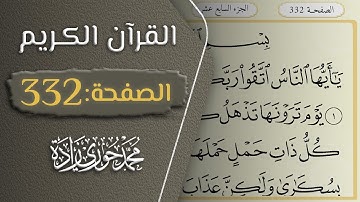 القرآن الكريم
الصفحة: 332
محمد حوري زاده
الصفحة 332
الجزء السابع عشر
بِسْ
يَٰٓأَيُّهَا ٱلنَّاسُ ٱتَّقُوا۟ رَبَّكُ
١ يَوْمَ تَرَوْنَهَا تَذْهَلُ كُ
كُلُّ ذَاتِ حَمْلٍ حَمْلَهَا
بِسُكَٰرَىٰ وَلَٰكِنَّ عَذَابَ